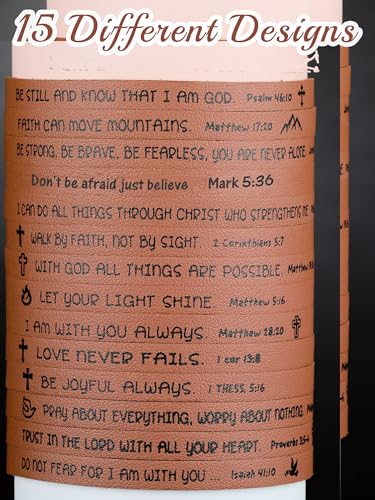 15 Different Designs
BE STILL AND KNOW THAT I AM GOD. Psalm 46:10
FAITH CAN MOVE MOUNTAINS. Matthew 17:20
BE STRONG, BE BRAVE, BE FEARLESS, YOU ARE NEVER ALONE
Don't be afraid just believe Mark 5:36
I CAN DO ALL THINGS THROUGH CHRIST WHO STRENGTHENS ME
WALK BY FAITH, NOT BY SIGHT. 2 Corinthians 5:7
WITH GOD ALL THINGS ARE POSSIBLE.
LET YOUR LIGHT SHINE. Matthew 5:16
I AM WITH YOU ALWAYS. Matthew 28:20
LOVE NEVER FAILS. 1 cor 13:8
BE JOYFUL ALWAYS. 1 THESS, 5:16
PRAY ABOUT EVERYTHING, WORRY ABOUT NOTHING
TRUST IN THE LORD WITH ALL YOUR HEART. Proverbs
DO NOT FEAR FOR I AM WITH YOU ... Isaiah 41:10